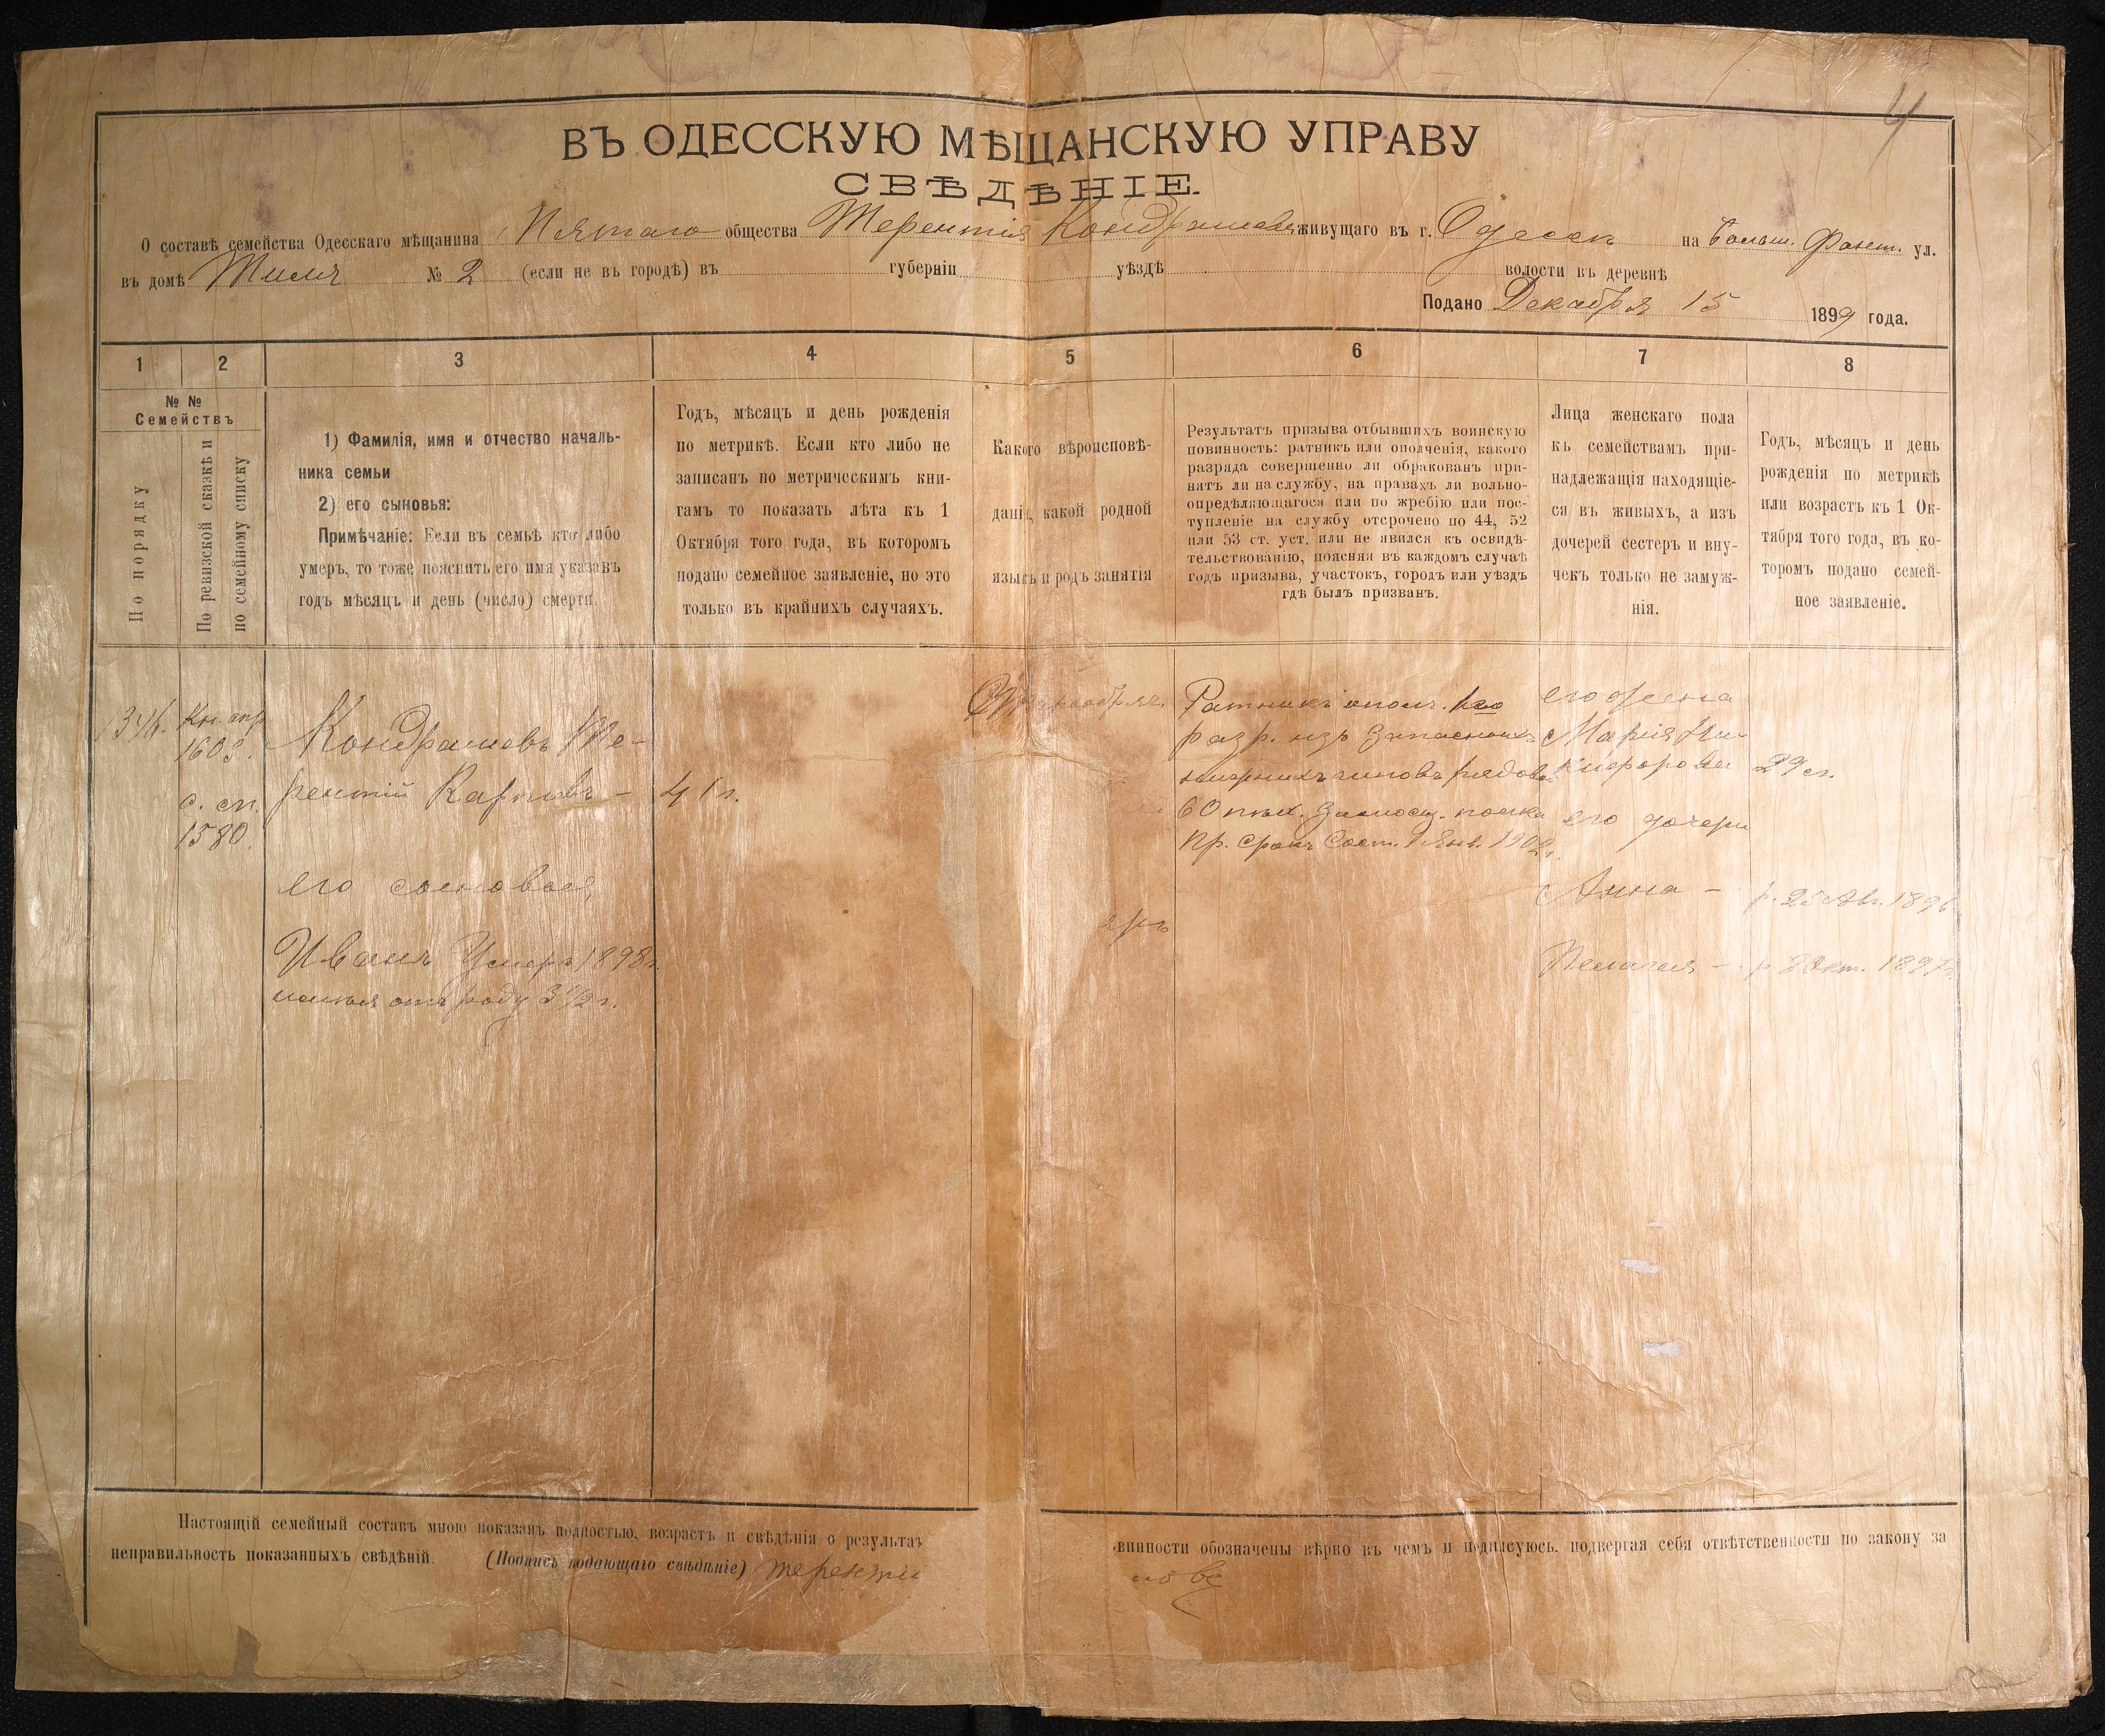 4
ВЪ ОДЕССКУЮ МѢЩАНСКУЮ УПРАВУ
СВѢДѢНІЕ.
О составѣ семейства Одесскаго мѣщанина Пятаго общества Терентія Кондрашева живущаго въ г. Одессѣ на Больш. Фонт. ул.
въ домѣ № 2 (если не въ городѣ) въ губерніи уѣздѣ волости въ деревнѣ
Подано Декабря 15 1899 года.
1 2 3 4 5 6 7 8
№ №
Семействъ
По порядку
По ревизской сказкѣ и
по семейному списку
1) Фамилія, имя и отчество началь-
ника семьи
2) его сыновья:
Примѣчаніе: Если въ семьѣ кто либо
умеръ, то тоже пояснить его имя указавъ
годъ мѣсяцъ и день (число) смерти.
Годъ, мѣсяцъ и день рожденія
по метрикѣ. Если кто либо не
записанъ по метрическимъ кни-
гамъ то показать лѣта къ 1
Октября того года, въ которомъ
подано семейное заявленіе, но это
только въ крайнихъ случаяхъ.
Какого вѣроисповѣ-
данія, какой родной
языкъ и родъ занятія
Результатъ призыва отбывшихъ воинскую
повинность: ратникъ или ополченія, какого
разряда совершенно ли обракованъ при-
нятъ ли на службу, на правахъ ли вольно-
опредѣляющагося или по жребію или пос-
тупленіе на службу отсрочено по 44, 52
или 53 ст. уст. или не явился къ освидѣ-
тельствованію, поясняя въ каждомъ случаѣ
годъ призыва, участокъ, городъ или уѣздъ
гдѣ былъ призванъ.
Лица женскаго пола
къ семействамъ при-
надлежащія находящіе-
ся въ живыхъ, а изъ
дочерей сестеръ и вну-
чекъ только не замуж-
нія.
Годъ, мѣсяцъ и день
рожденія по метрикѣ
или возрастъ къ 1 Ок-
тября того года, въ ко-
торомъ подано семей-
ное заявленіе.
1346. Кн.
1603.
с. сп.
1580.
Кондрашевъ Те-
рентій Карповъ – 41 г.
его сыновья
Иванъ Умеръ 1898 г.
отъ роду 3 1/2 г.
Ратникъ опол. 1го
разр. изъ запасныхъ
нижнихъ чиновъ рядов.
60 пѣх. Замосц. полка
пр. срокъ сост. 1 Янв. 1902 г.
его жена
Марія Ни-
кифорова 29 л.
его дочери
Анна – р. 25 Авг. 1896
Пелагея – р. 8 Окт. 1897 г.
Настоящій семейный составъ мною показанъ полностью, возрастъ и свѣдѣнія о результат винности обозначены вѣрно въ чемъ и подписуюсь, подвергая себя отвѣтственности по закону за
неправильность показанныхъ свѣдѣній. (Подпись подающаго свѣдѣніе) Терентіи